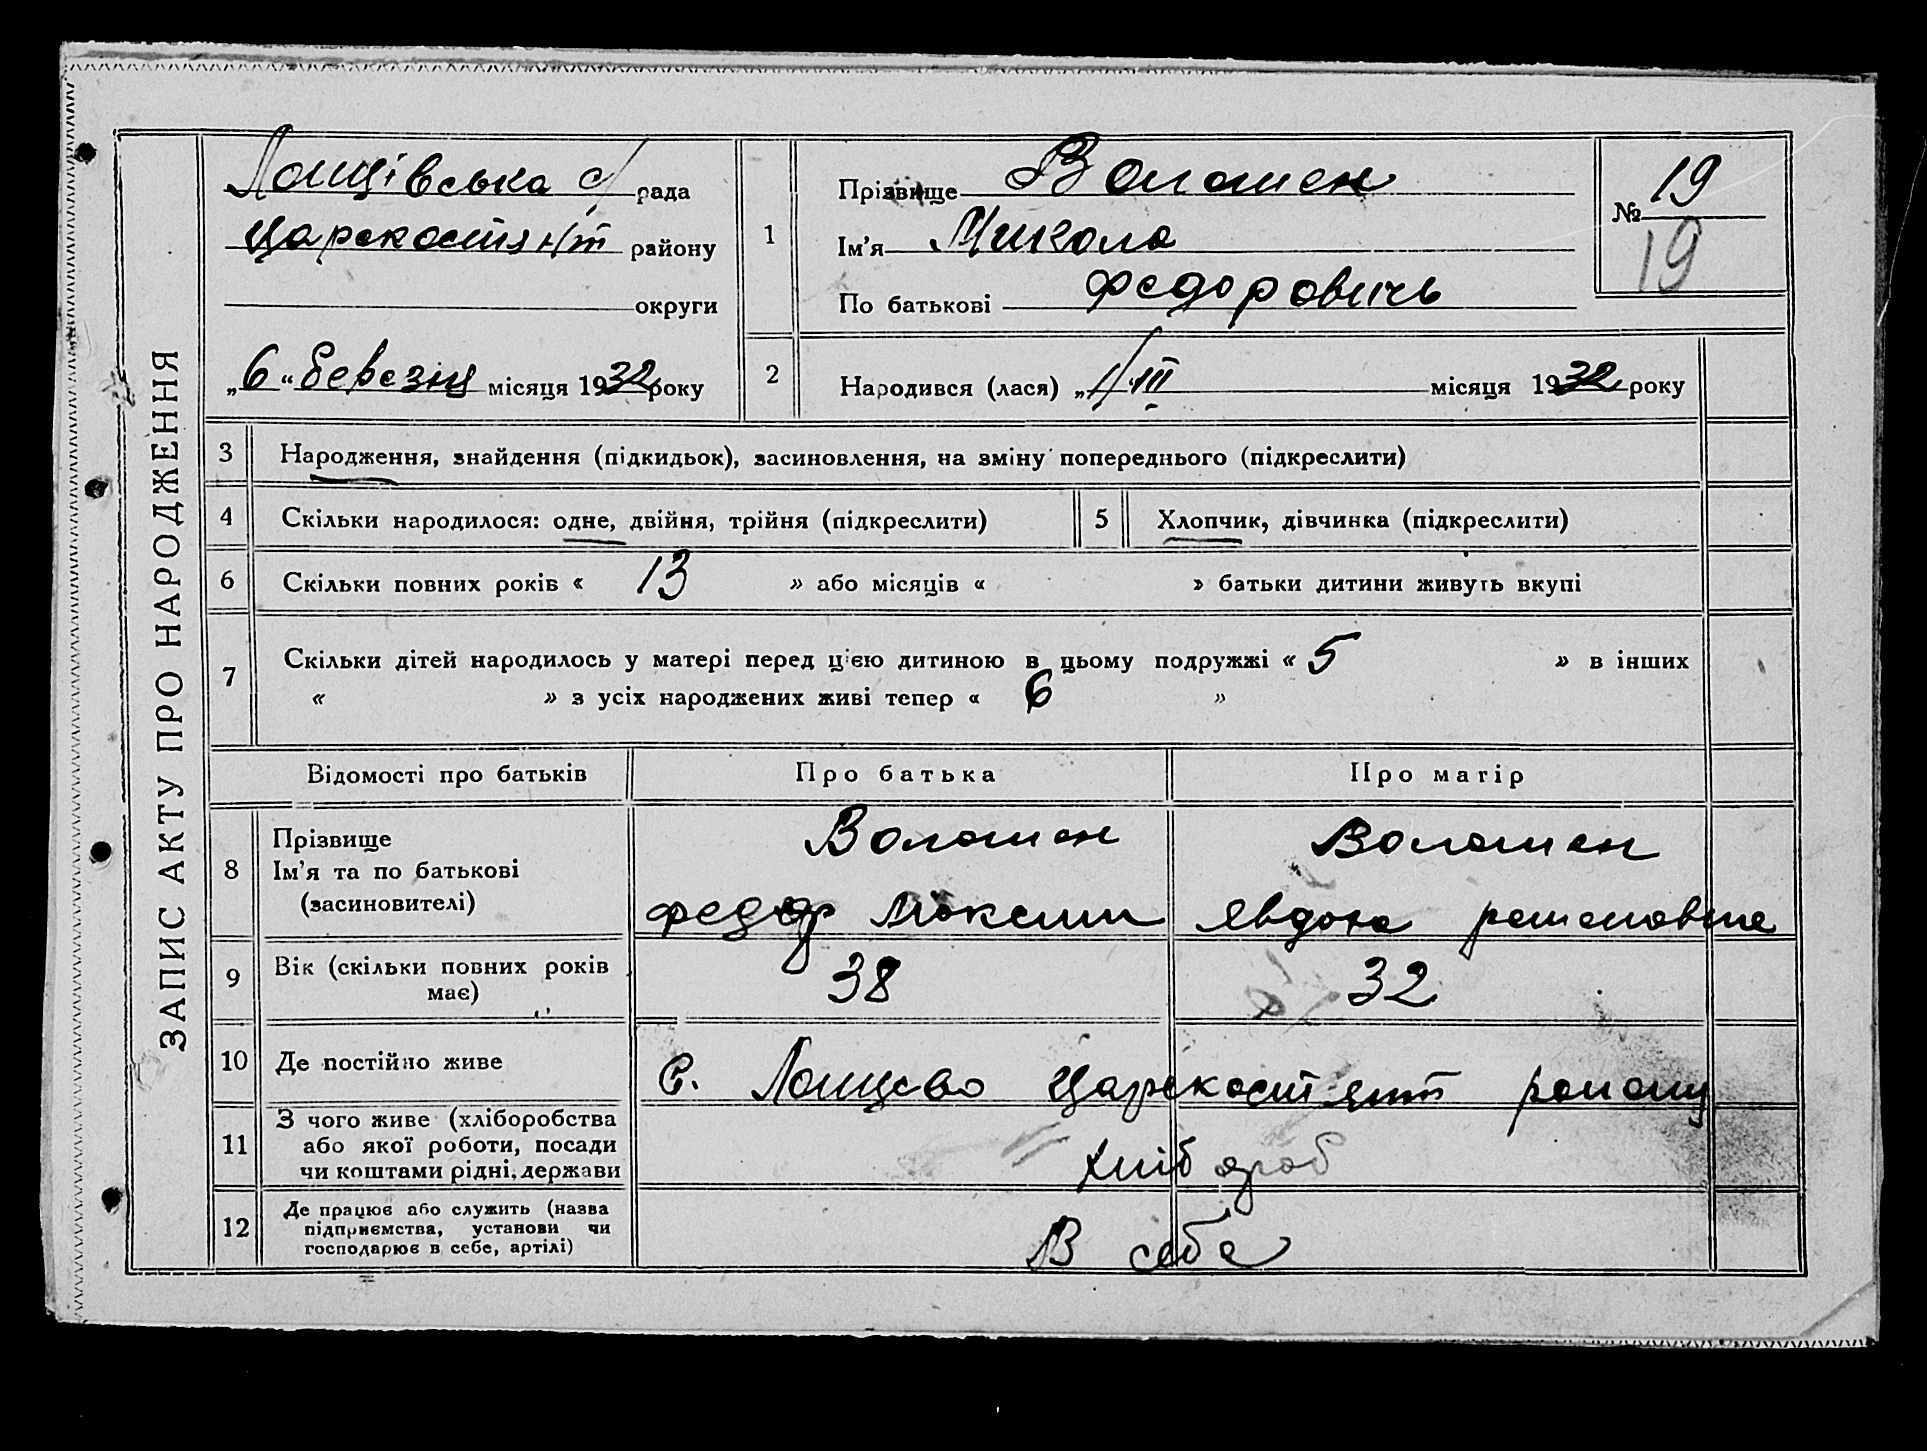 ЗАПИС АКТУ ПРО НАРОДЖЕННЯ
Лощівська с/рада
району
округи
„6“ березня місяця 1932 року
1
Прізвище Волошен
Ім'я Микола
По батькові Федоровичь
№ 19
19
2 Народився (лася) „1/III місяця 1932 року
3 Народження, знайдення (підкидьок), засиновлення, на зміну попереднього (підкреслити)
4 Скільки народилося: одне, двійня, трійня (підкреслити) 5 Хлопчик, дівчинка (підкреслити)
6 Скільки повних років « 13 » або місяців « » батьки дитини живуть вкупі
7 Скільки дітей народилось у матері перед цією дитиною в цьому подружжі « 5 » в інших
« » з усіх народжених живі тепер « 6 »
Відомості про батьків Про батька Про матір
8 Прізвище Волошен Волошен
Ім'я та по батькові
(засиновителі) Федор Максим Явдоха
9 Вік (скільки повних років має) 38 32
10 Де постійно живе С. району
11 З чого живе (хліборобства
або якої роботи, посади
чи коштами рідні, держави хлібороб
12 Де працює або служить (назва
підприємства, установи чи
господарює в себе, артілі) В себе